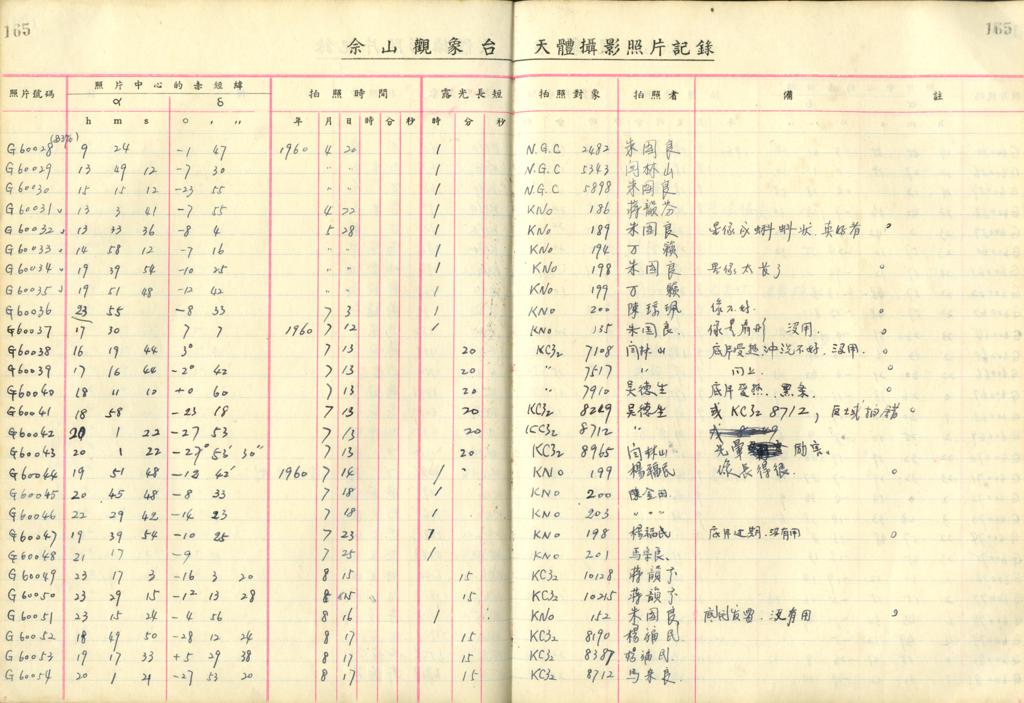 165 165
佘山觀象台 天體攝影照片記錄
照片號碼 照片中心的赤經緯 拍照時間 露光長短 拍照對象 拍照者 備 註
α δ
h m s ° ′ ″ 年 月 日 時 分 秒 時 分 秒
(B376)
G60028 9 24 -1 47 1960 4 20 1 N.G.C 2482 朱国良
G60029 13 49 12 -7 30 " " 1 N.G.C 5343 闫林山
G60030 15 15 12 -23 55 " " 1 N.G.C 5898 朱国良
G60031 13 3 41 -7 55 4 22 1 KNo 186 蒋韻芬
G60032 13 33 36 -8 4 5 28 1 KNo 189 朱国良 星像成蝌蚪状
G60033 14 58 12 -7 16 " " 1 KNo 194 万籁
G60034 19 39 54 -10 25 " " 1 KNo 198 朱国良 星像太长了
G60035 19 51 48 -12 42 " " 1 KNo 199 万籁
G60036 23 55 -8 33 7 3 1 KNo 200 陳瑞珮 像不好.
G60037 17 30 7 7 1960 7 12 1 KNo 135 朱国良. 像是扇形 没用.
G60038 16 19 44 3° 7 13 20 KC32 7108 闫林山 底片受热冲洗不好. 没用.
G60039 17 16 44 -2° 42 7 13 20 " 7517 " 同上.
G60040 18 11 10 +0 60 7 13 20 " 7910 吴德生 底片受热.
G60041 18 58 -23 18 7 13 20 KC32 8249 吴德生 或 KC32 8712,
G60042 20 1 22 -27 53 7 13 20 KC32 8712 "
G60043 20 1 22 -27° 53′ 30″ 7 13 20 KC32 8965 闫林山 光晕
G60044 19 51 48 -12 42′ 1960 7 14 1 KNo 199 楊福民 像长得很.
G60045 20 45 48 -8 33 7 18 1 KNo 200 陳金田
G60046 22 29 42 -14 23 7 18 1 KNo 203 " " "
G60047 19 39 54 -10 25 7 23 1 KNo 198 楊福民 底片过期. 没有用
G60048 21 17 -9 7 25 1 KNo 201 馬宗良.
G60049 23 17 3 -16 3 20 8 15 15 KC32 10128 蒋韻
G60050 23 29 15 -12 13 28 8 15 15 KC32 10215 蒋韻
G60051 23 15 24 -4 56 8 16 1 KNo 152 朱国良 没有用
G60052 18 49 50 -28 12 24 8 17 15 KC32 8190 楊福民
G60053 19 17 33 +5 29 38 8 17 15 KC32 8387 楊福民.
G60054 20 1 21 -27 53 20 8 17 15 KC32 8712 馬宗良.